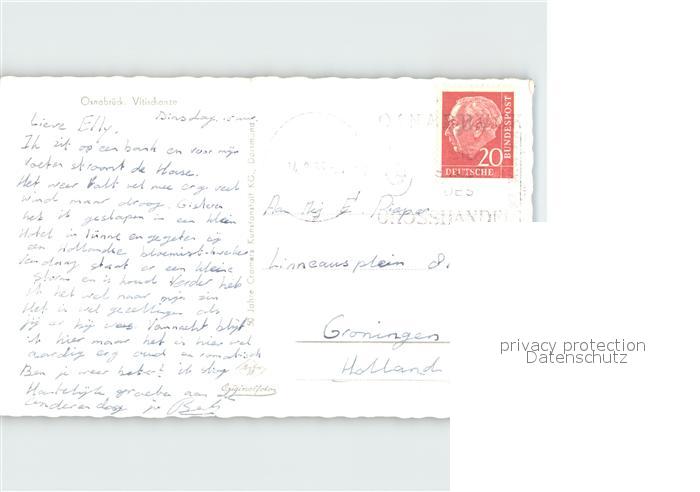 Osnabrück. Vitischanze
Dinsdag
Lieve Elly,
Ik zit op een bank en voor mijn
voeten stroomt de Hase.
Het weer valt wel mee erg veel
wind maar droog. Gisteren
heb ik geslapen in een klein
Hotel in Lünne en gegeten bij
een Hollandse bloemist-kweker
Vandaag staat er een kleine
storm en is koud Verder heb
ik het wel naar mijn zin
Het is wel gezelliger als
jij er bij was. Vannacht blijf
ik hier maar het is hier wel
aardig erg oud en romantisch
Ben je weer beter?
Hartelijke groeten aan
Bets
50 Jahre Cramers Kunstanstalt KG., Dortmund
Originalfoto
20
DEUTSCHE
BUNDESPOST
OSNABRÜCK
DES
GROSSHANDEL
Aan Mej E. Pieper
Linneausplein 8
Groningen
Holland
privacy protection
Datenschutz